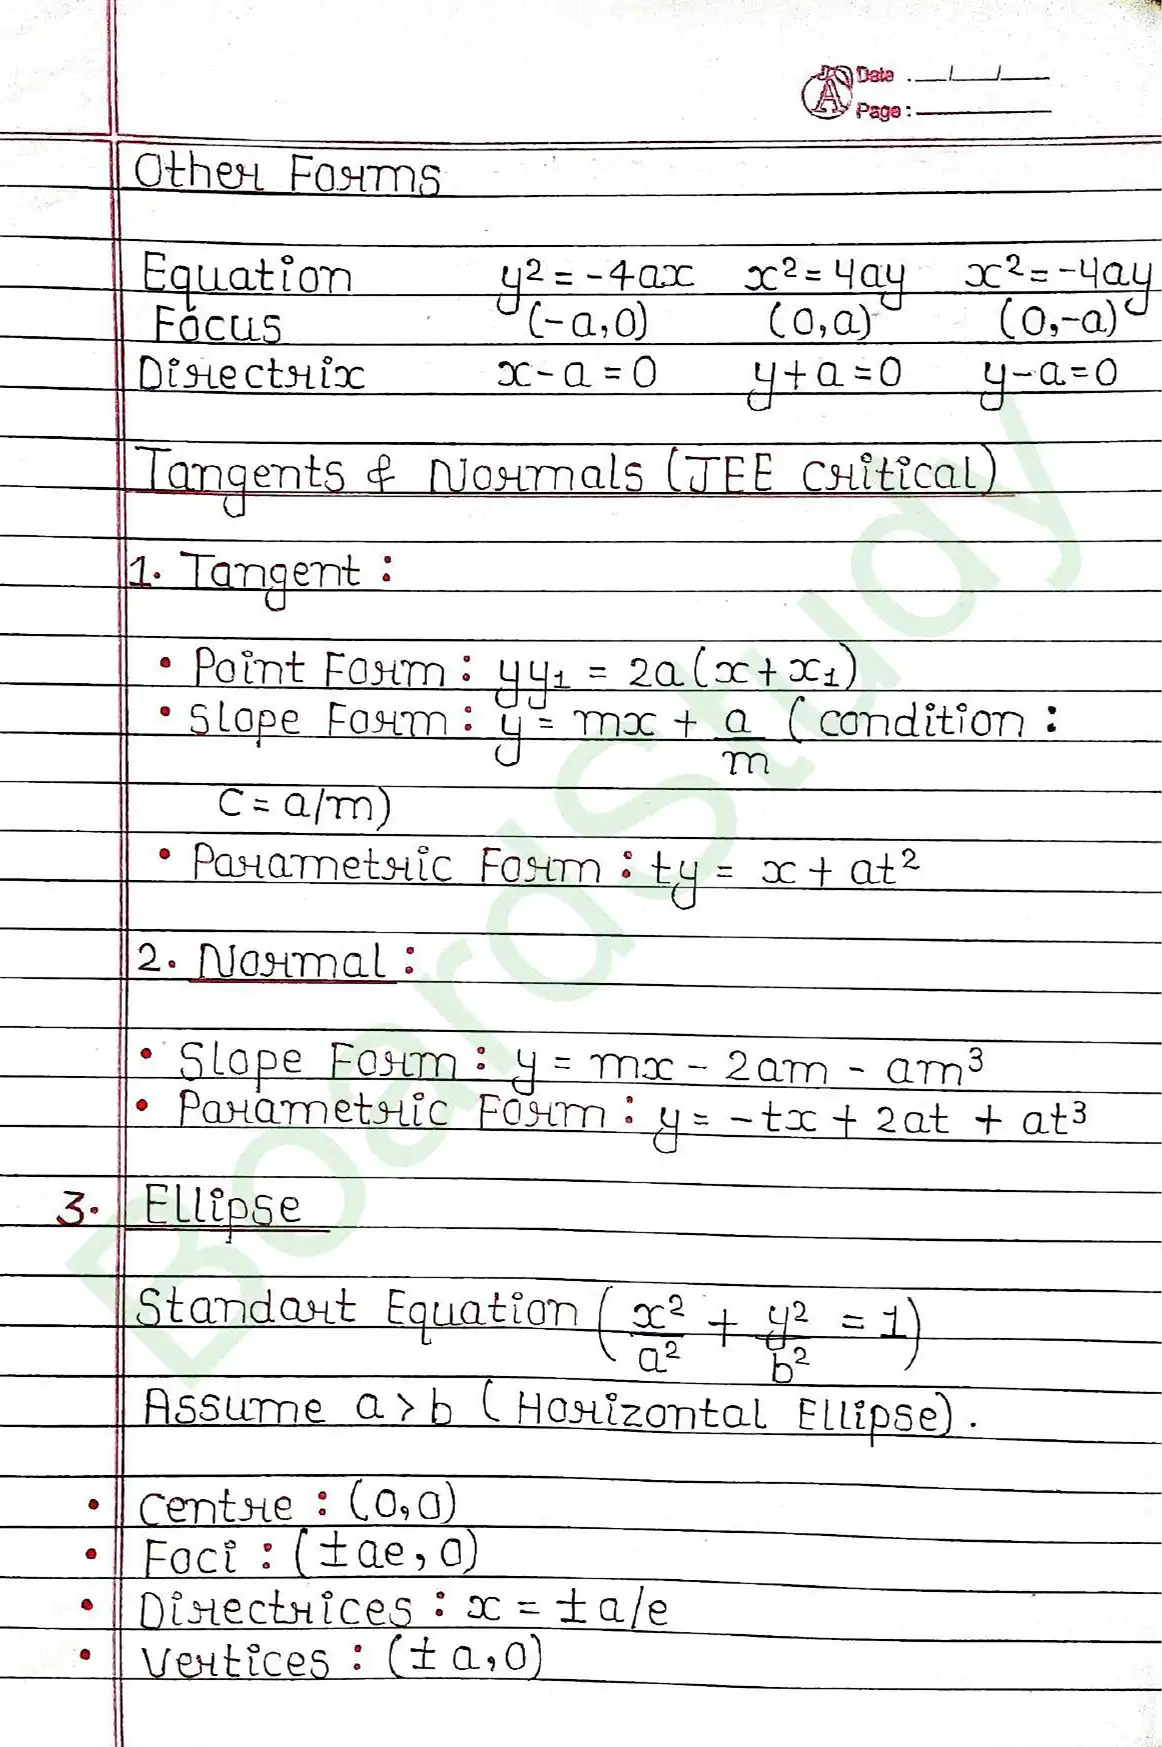 Date : __/__/__
Page :
Other Forms
Equation y² = -4ax x² = 4ay x² = -4ay
Focus (-a,0) (0,a) (0,-a)
Directrix x-a=0 y+a=0 y-a=0
Tangents & Normals (JEE Critical)
1. Tangent :
• Point Form : yy₁ = 2a(x+x₁)
• Slope Form : y = mx + a/m (condition :
C = a/m)
• Parametric Form : ty = x + at²
2. Normal :
• Slope Form : y = mx - 2am - am³
• Parametric Form : y = -tx + 2at + at³
3. Ellipse
Standart Equation (x²/a² + y²/b² = 1)
Assume a > b (Horizontal Ellipse).
• Centre : (0,0)
• Foci : (±ae, 0)
• Directrices : x = ±a/e
• Vertices : (±a,0)
BoardStudy